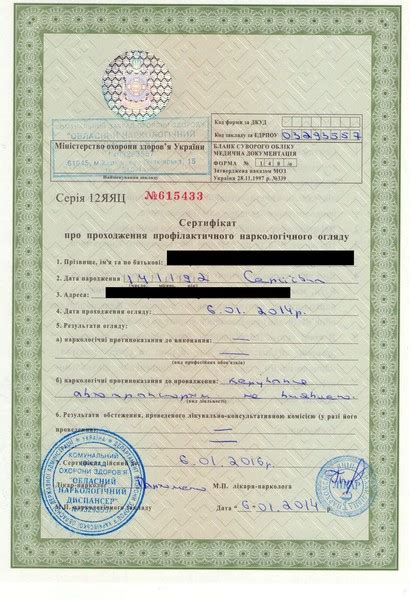 "ОБЛАСНИЙ НАРКОЛОГІЧНИЙ
Міністерство охорони здоров'я України
61045, м.
15
Найменування закладу
Код форми за ДКУД
Код закладу за ЕДРПОУ 03293557
БЛАНК СУВОРОГО ОБЛІКУ
МЕДИЧНА ДОКУМЕНТАЦІЯ
ФОРМА № 140/о
Затверджена наказом МОЗ
України 28.11.1997 р. №339
Серія 12ЯЯЦ №615433
Сертифікат
про проходження профілактичного наркологічного огляду
1. Прізвище, ім'я та по батькові:
2. Дата народження
(число, місяць, рік)
3. Адреса:
4. Дата проходження огляду: 6.01.2014р.
5. Результати огляду:
а) наркологічні протипоказання до виконання: —
—
(вид професійних обов'язків)
б) наркологічні протипоказання до провадження: керування
автотранспортом не виявлено.
(вид діяльності)
6. Результати обстеження, проведеного лікувально-консультативною комісією (у разі його
проведення): —
—
7. Сертифікат дійсний до 6.01.2016р.
Лікар-нарколог
М.П. лікаря-нарколога
М.П. наркологічного закладу
Дата "6".01.2014р.
КОМУНАЛЬНИЙ
ОХОРОНИ ЗДОРОВ'Я
"ОБЛАСНИЙ
НАРКОЛОГІЧНИЙ
ДИСПАНСЕР"